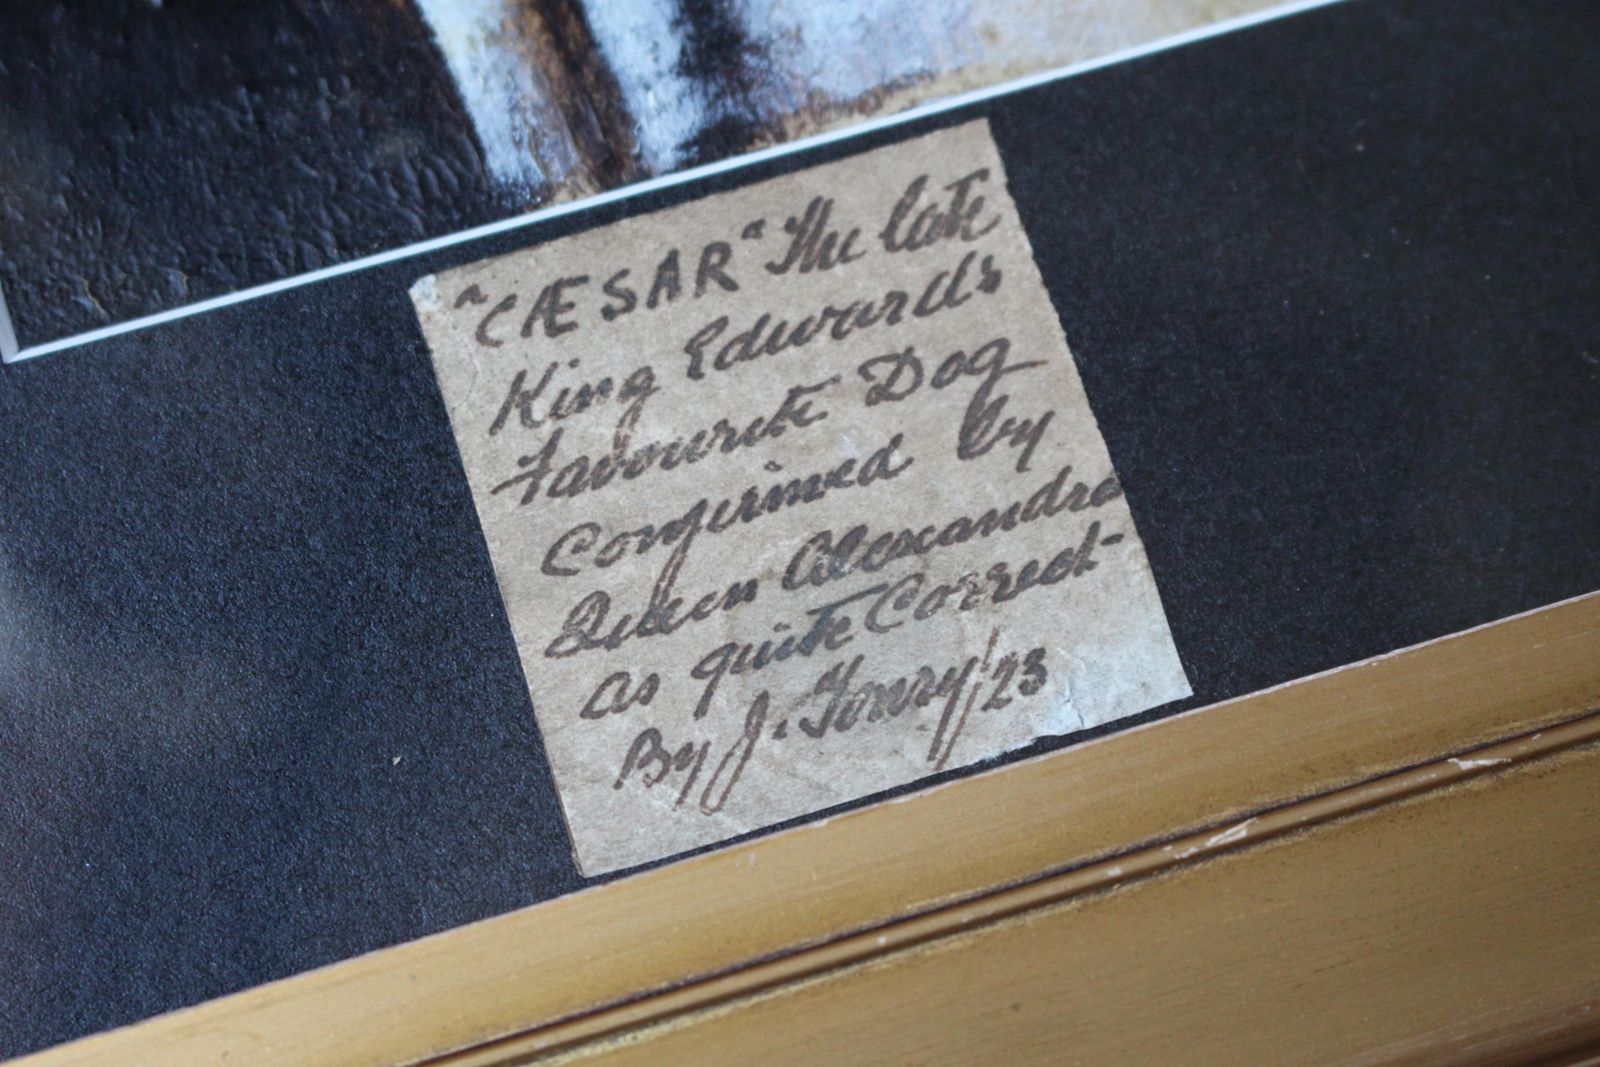 "CÆSAR" The late
King Edwards
Favourite Dog
Confirmed by
Queen Alexandra
as quite Correct-
By J. Fonry '23